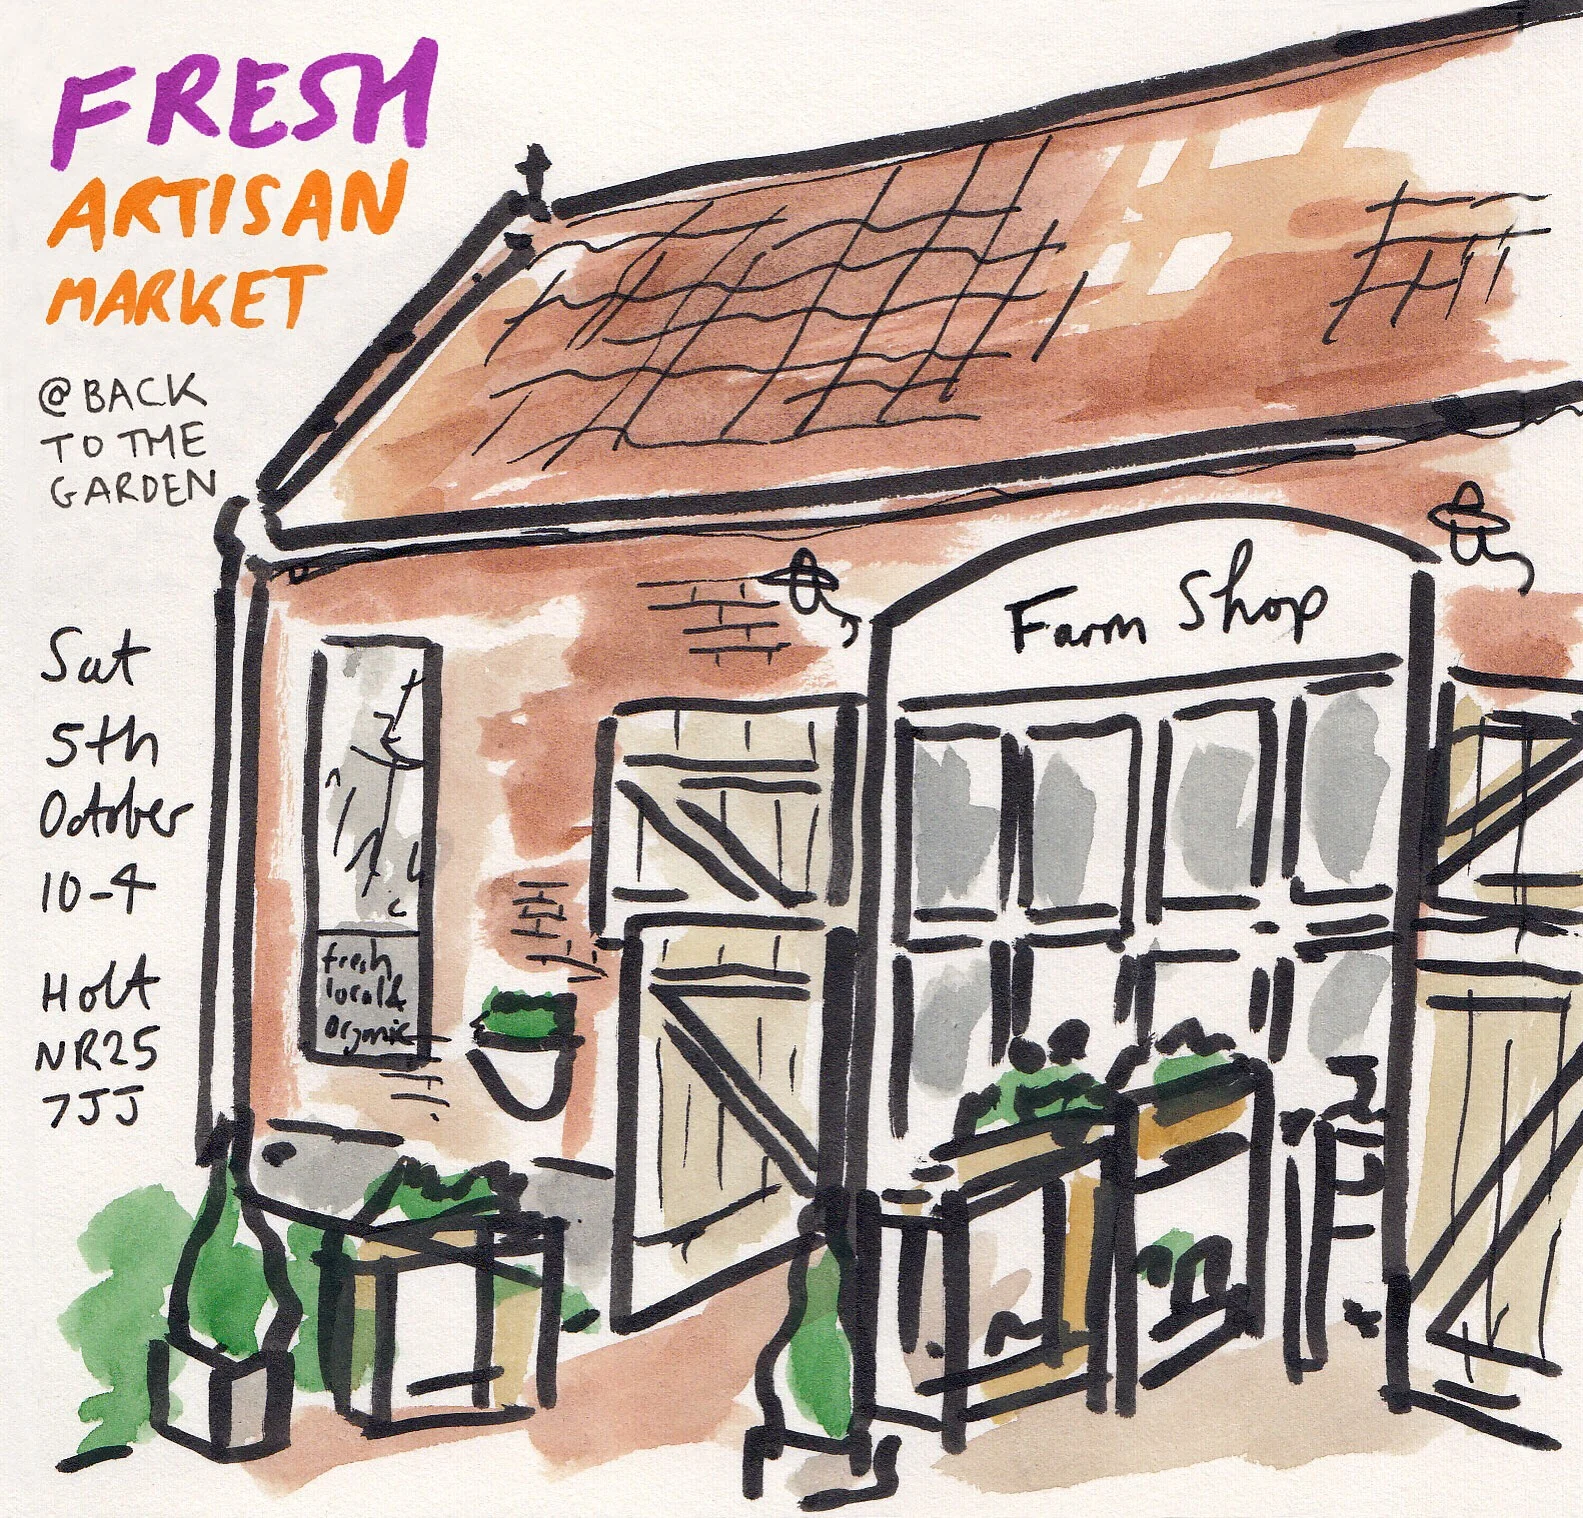 FRESH
ARTISAN
MARKET
@ BACK
TO THE
GARDEN
Sat
5th
October
10-4
Holt
NR25
7JJ
Farm Shop
fresh
local &
organic